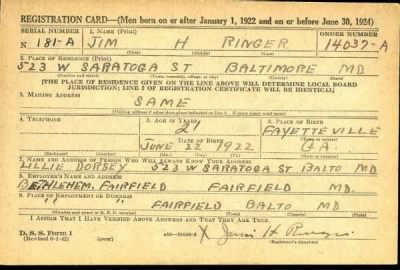 REGISTRATION CARD—(Men born on or after January 1, 1922 and on or before June 30, 1924)
SERIAL NUMBER 1. NAME (Print) ORDER NUMBER
N 181-A JIM H RINGER 14037-A
(First) (Middle) (Last)
2. PLACE OF RESIDENCE (Print)
523 W SARATOGA ST BALTIMORE MD
(Number and street) (Town, township, village, or city) (County) (State)
[THE PLACE OF RESIDENCE GIVEN ON THE LINE ABOVE WILL DETERMINE LOCAL BOARD
JURISDICTION; LINE 2 OF REGISTRATION CERTIFICATE WILL BE IDENTICAL]
3. MAILING ADDRESS
SAME
4. TELEPHONE 5. AGE IN YEARS 6. PLACE OF BIRTH
21 FAYETTEVILLE
DATE OF BIRTH
JUNE 22 1922 GA.
(Exchange) (Number) (Mo.) (Day) (Yr.) (State or country)
7. NAME AND ADDRESS OF PERSON WHO WILL ALWAYS KNOW YOUR ADDRESS
LILLIE DORSEY 523 W SARATOGA ST BALTO MD
8. EMPLOYER'S NAME AND ADDRESS
BETHLEHEM, FAIRFIELD FAIRFIELD MD.
9. PLACE OF EMPLOYMENT OR BUSINESS
FAIRFIELD BALTO MD
(Number and street or R. F. D. number) (Town) (County) (State)
I AFFIRM THAT I HAVE VERIFIED ABOVE ANSWERS AND THAT THEY ARE TRUE.
D. S. S. Form 1
X Jim H Ringer
(Registrant's signature)